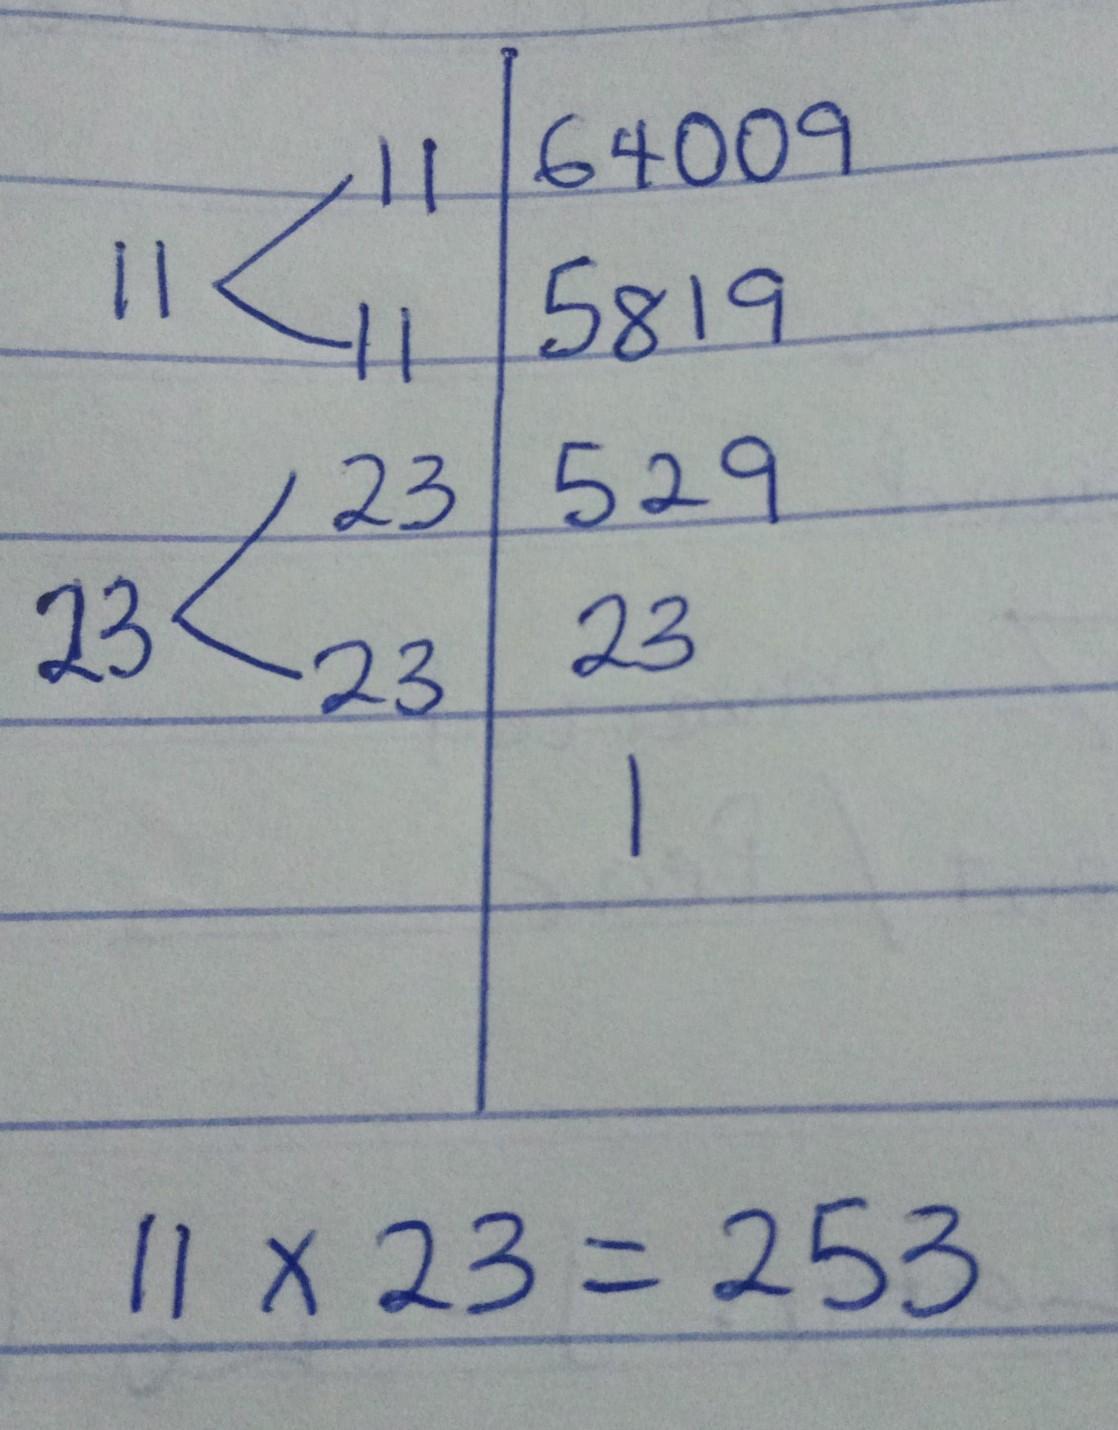 11 | 64009
11 < 11 | 5819
23 | 529
23 < 23 | 23
1
11 x 23 = 253